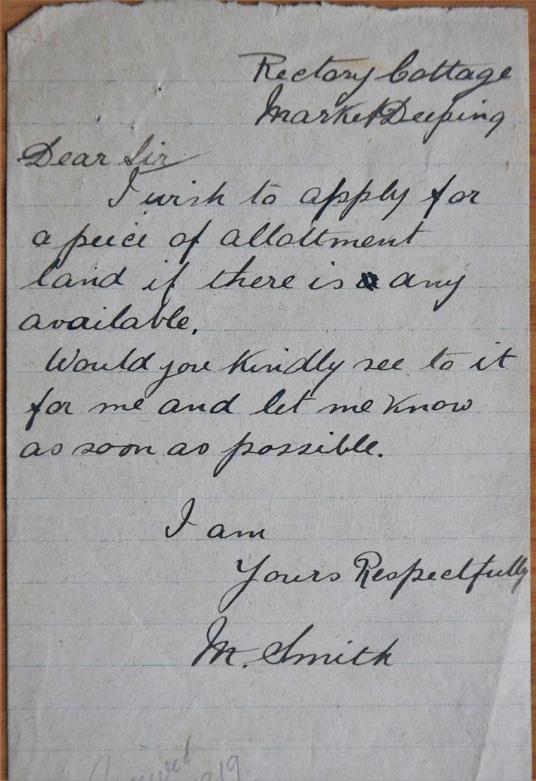 Rectory Cottage
Market Deeping
Dear Sir
I wish to apply for
a peice of allottment
land if there is any
available.
Would you kindly see to it
for me and let me know
as soon as possible.
I am
Yours Respectfully
M. Smith